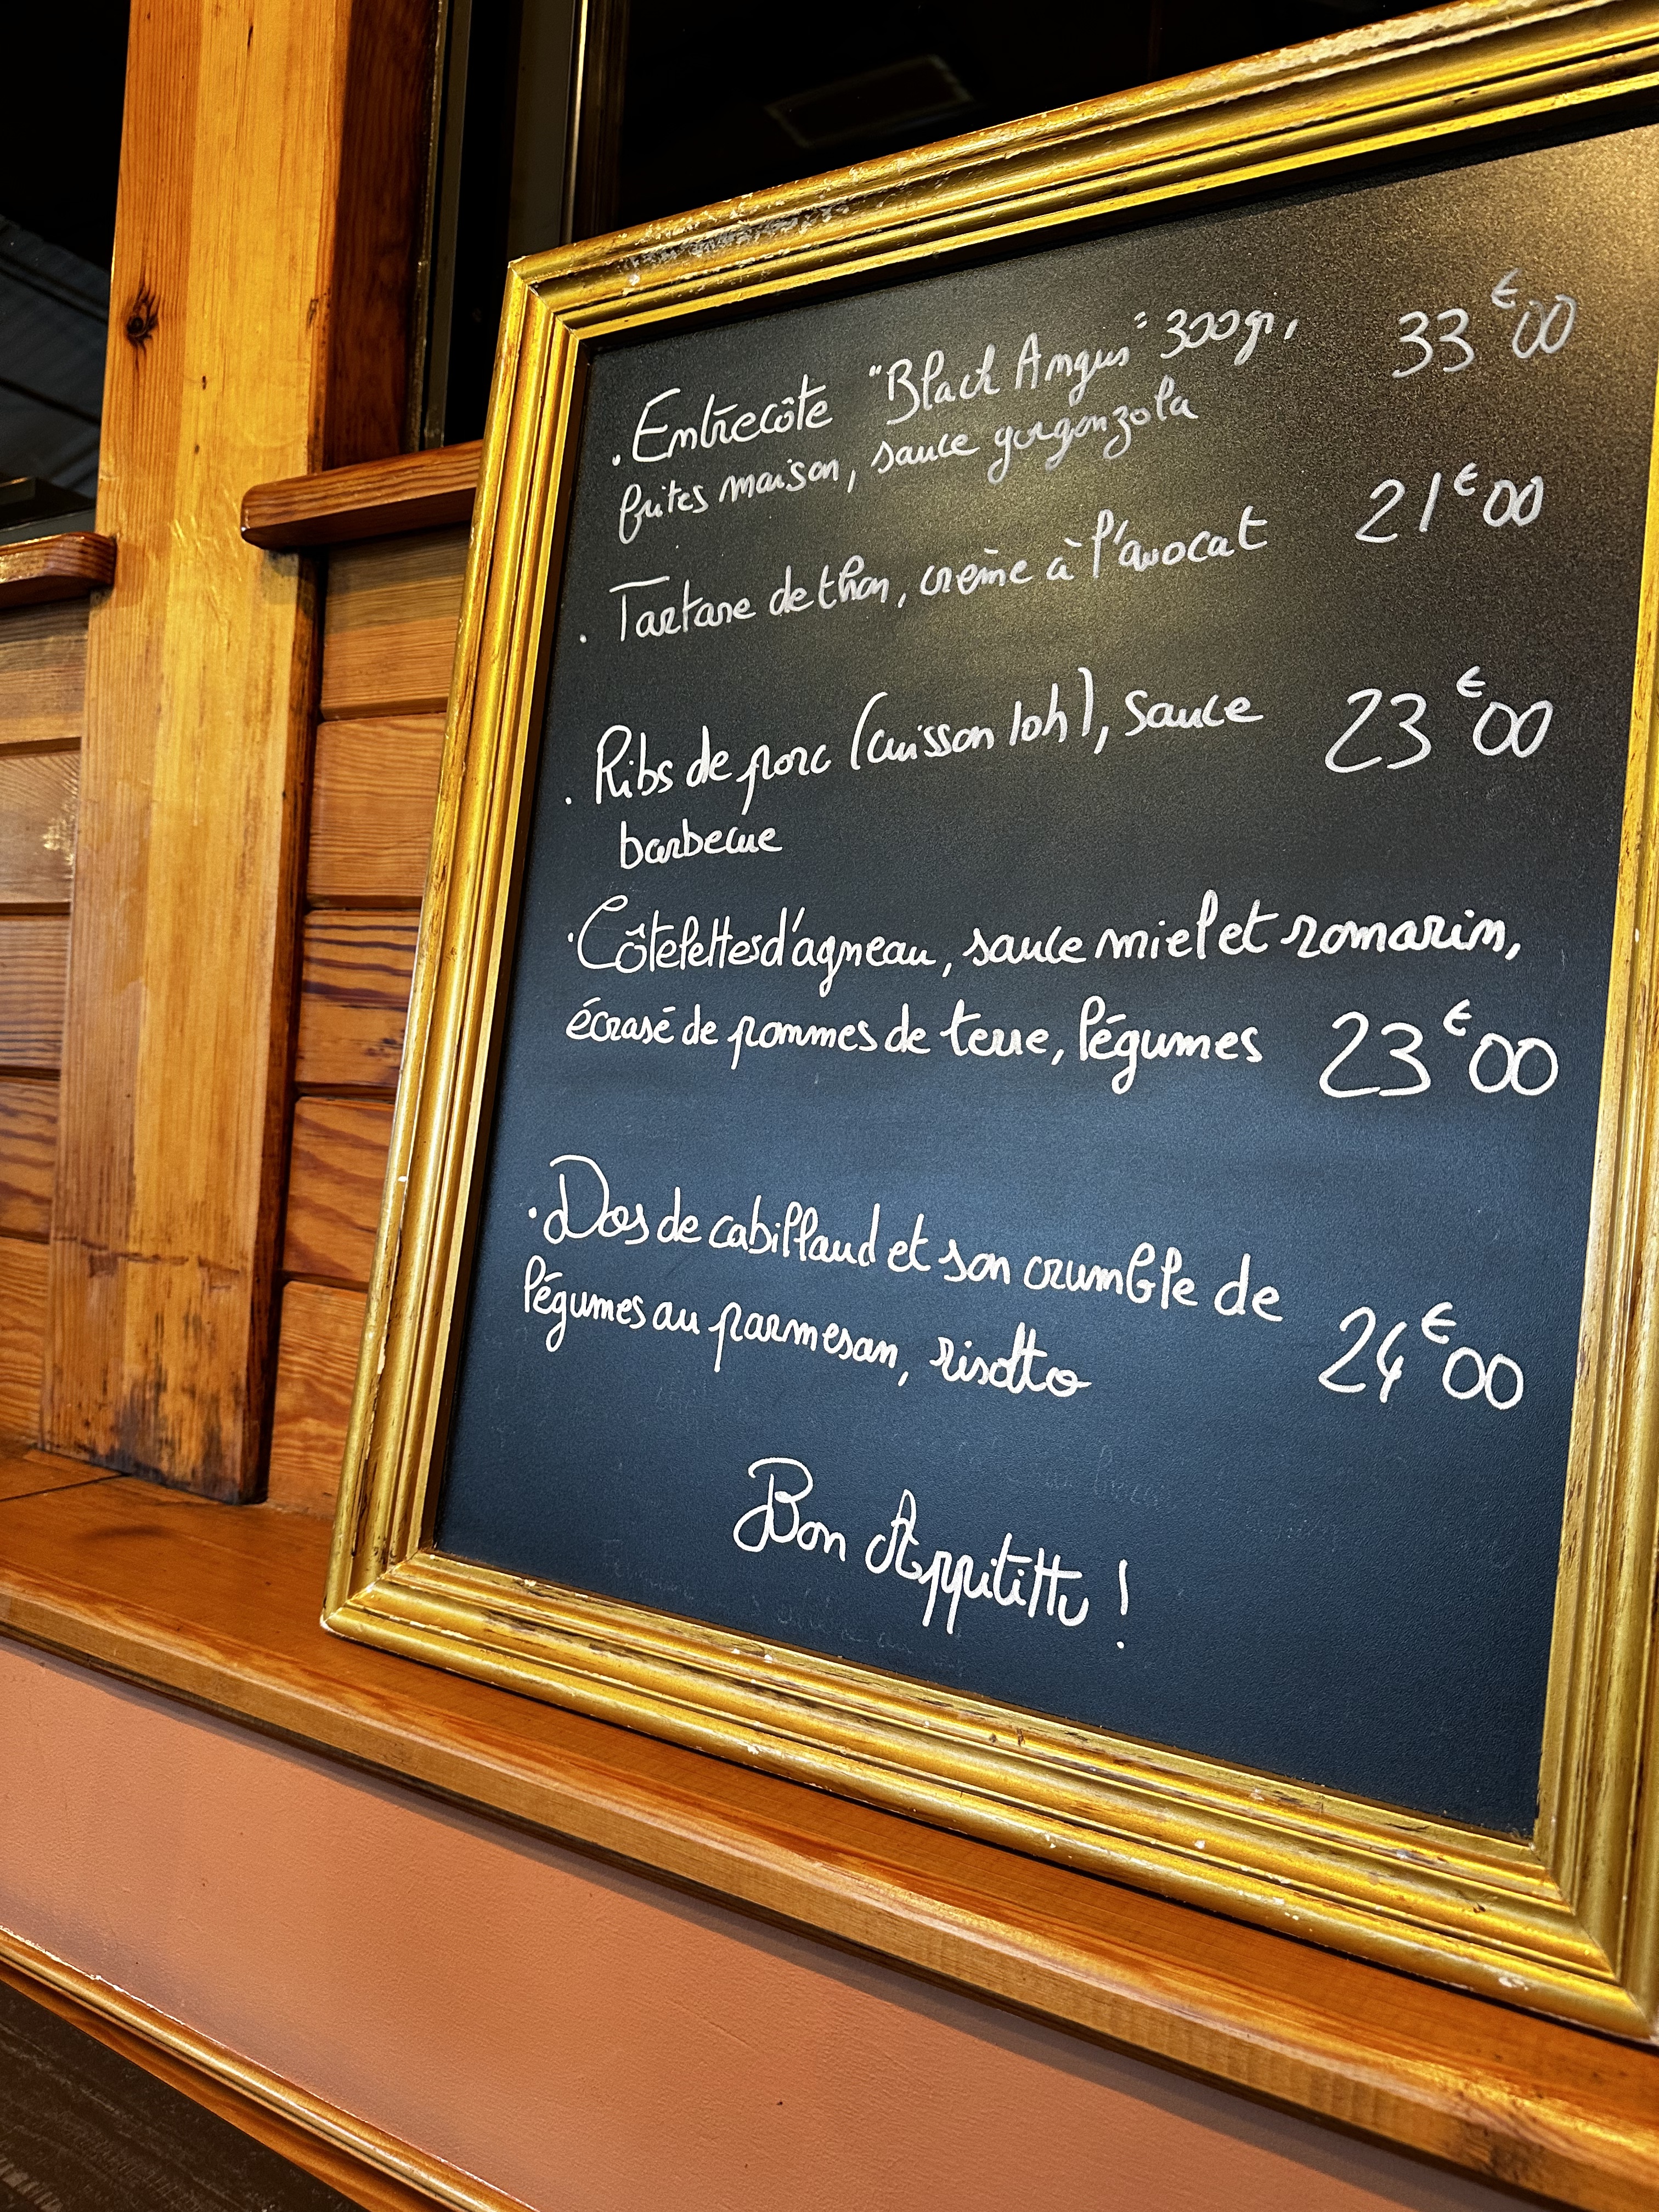 . Entrecôte "Black Angus" 300gr, 33€00
frites maison, sauce gorgonzola
. Tartare de thon, crème à l'avocat 21€00
. Ribs de porc (cuisson 10h), sauce 23€00
barbecue
. Côtelettes d'agneau, sauce miel et romarin,
écrasé de pommes de terre, légumes 23€00
. Dos de cabillaud et son crumble de
légumes au parmesan, risotto 24€00
Bon Appitittu !